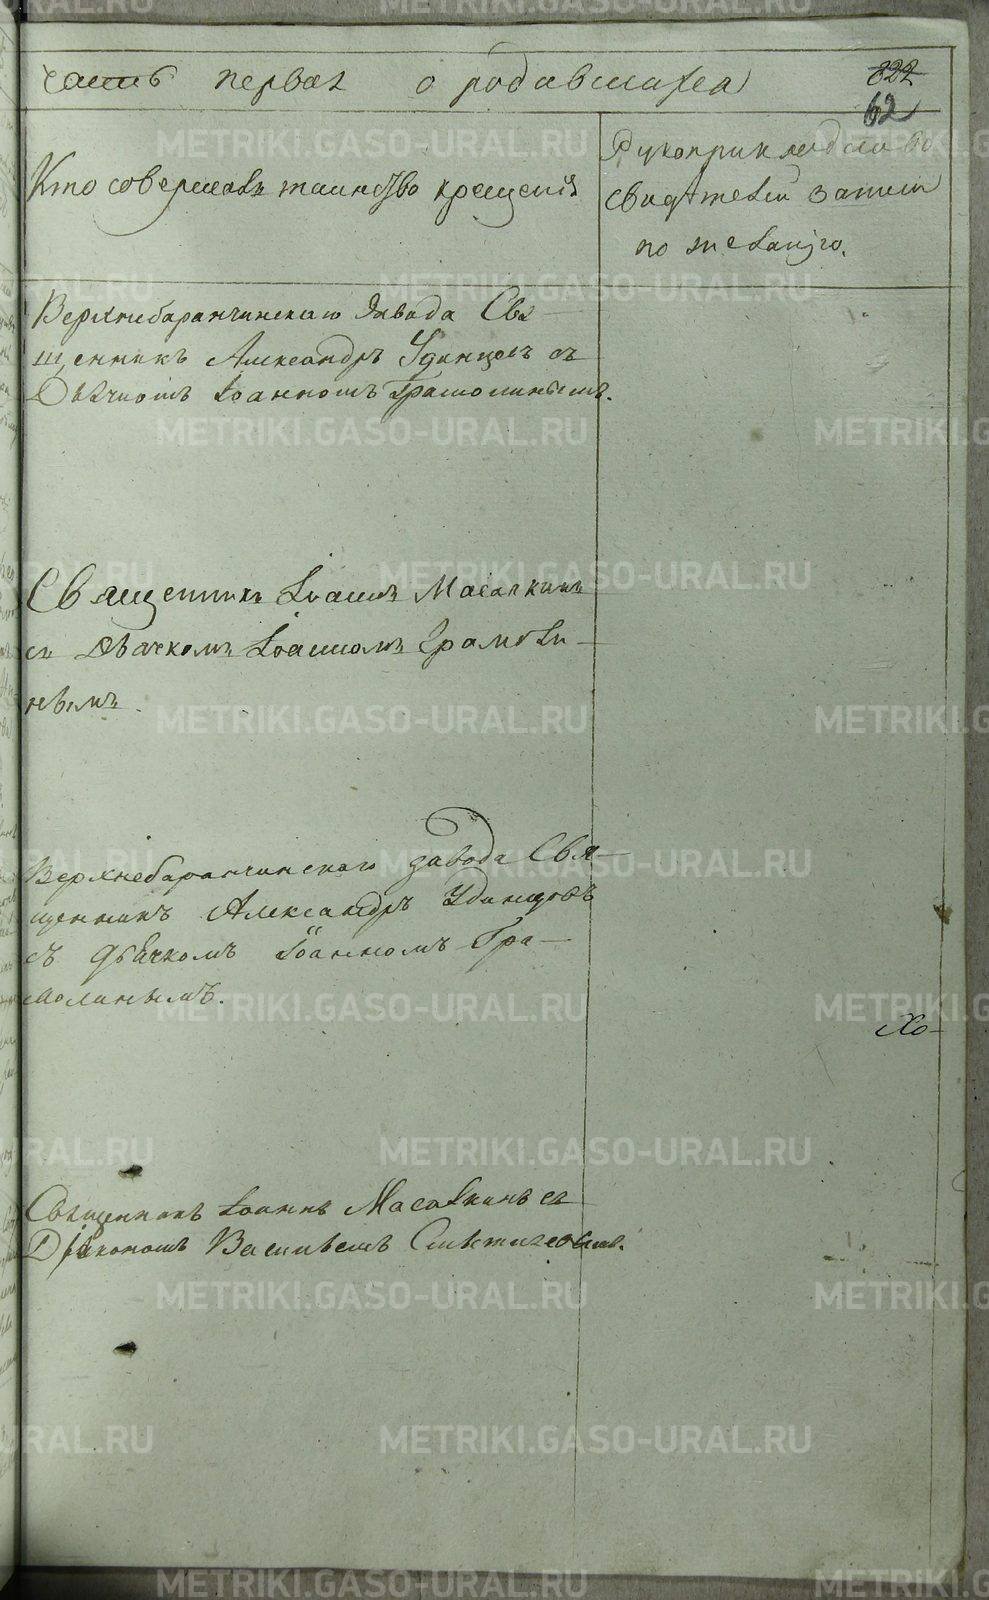 часть первая о родившихся
822
62
Кто совершалъ таинство крещенія
Рукоприкладство
свидѣтелей записи
по желанію.
Верхнебаранчинскаго Завода Свя
щенникъ Александръ Удинцовъ съ
Дьячкомъ Іоанномъ Грамолинымъ.
Священникъ Іоаннъ Масалкинъ
съ Дьячкомъ Іоанномъ Грамоли-
нымъ.
Верхнебаранчинскаго завода Свя-
щенникъ Александръ Удинцовъ
съ дьячкомъ Іоанномъ Гра-
молинымъ.
Хо-
Священникъ Іоаннъ Масалкинъ съ
Діакономъ Василіемъ
METRIKI.GASO-URAL.RU